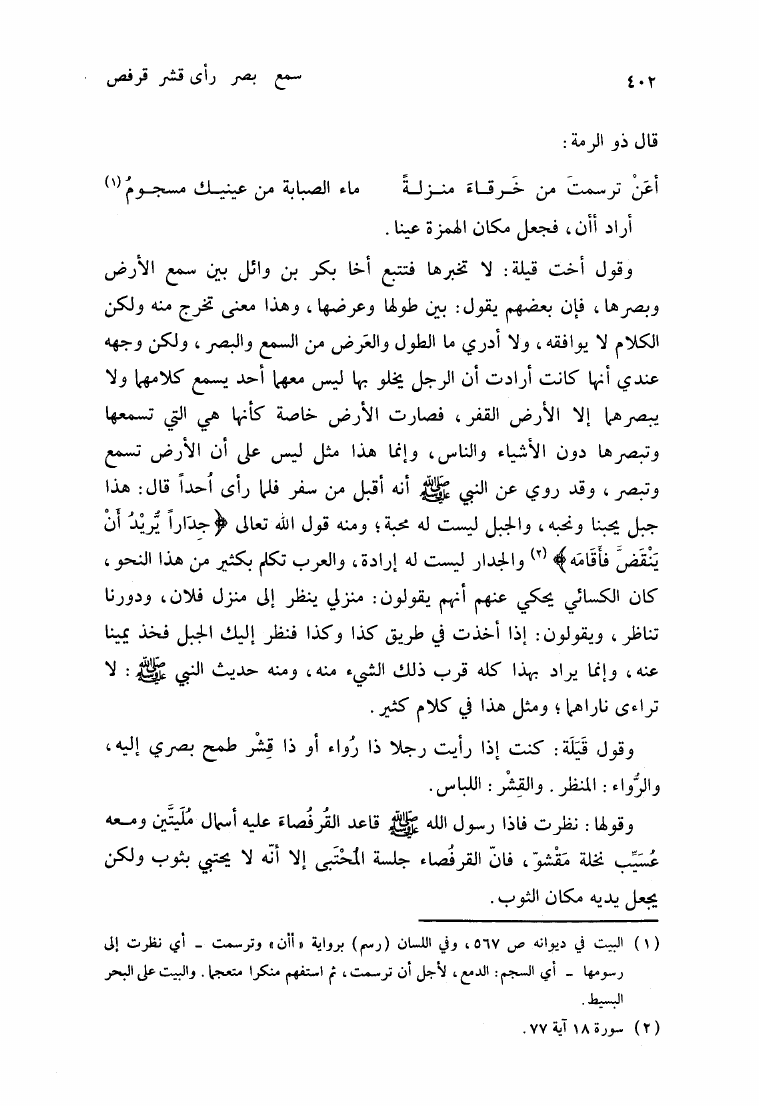 ٤٠٢
سمع بصر رأى قشر قرفص
قال ذو الرمة :
أعَنْ ترسمتَ من خَرقاءَ منزلةً ماء الصبابة من عينيك مسجومُ (١)
أراد أأن ، فجعل مكان الهمزة عينا .
وقول أخت قيلة : لا تخبرها فتتبع أخا بكر بن وائل بين سمع الأرض
وبصرها ، فإن بعضهم يقول : بين طولها وعرضها ، وهذا معنى تخرج منه ولكن
الكلام لا يوافقه ، ولا أدري ما الطول والعَرض من السمع والبصر ، ولكن وجهه
عندي أنها كانت أرادت أن الرجل يخلو بها ليس معهما أحد يسمع كلامهما ولا
يبصرهما إلا الأرض القفر ، فصارت الأرض خاصة كأنها هي التي تسمعها
وتبصرها دون الأشياء والناس ، وإنما هذا مثل ليس على أن الأرض تسمع
وتبصر ، وقد روي عن النبي ﷺ أنه أقبل من سفر فلما رأى أُحداً قال : هذا
جبل يحبنا ونحبه ، والجبل ليست له محبة ؛ ومنه قول الله تعالى ﴿ جِدَاراً يُّرِيْدُ أَنْ
يَنْقَضَّ فَأَقَامَه ﴾ (٢) والجدار ليست له إرادة ، والعرب تكلم بكثير من هذا النحو ،
كان الكسائي يحكي عنهم أنهم يقولون : منزلي ينظر إلى منزل فلان ، ودورنا
تناظر ، ويقولون : إذا أخذت في طريق كذا وكذا فنظر إليك الجبل فخذ يمينا
عنه ، وإنما يراد بهذا كله قرب ذلك الشيء منه ، ومنه حديث النبي ﷺ : لا
تراءى ناراهما ؛ ومثل هذا في كلام كثير .
وقول قَيَلَة : كنت إذا رأيت رجلا ذا رُواء أو ذا قِشْر طمح بصري إليه ،
والرُّواء : المنظر . والقِشْر : اللباس .
وقولها : نظرت فاذا رسول الله ﷺ قاعد القُرفُصاءَ عليه أسمال مُلَيتَّين ومعه
عُسَيِّب نخلة مَقْشوّ ، فانّ القرفُصاء جلسة المُحْتَبى إلا أنّه لا يحتبي بثوب ولكن
يجعل يديه مكان الثوب .
(١) البيت في ديوانه ص ٥٦٧ ، وفي اللسان (رسم) برواية «أأن» وترسمت - أي نظرت إلى
رسومها - أي السجم : الدمع ، لأجل أن ترسمت ، ثم استفهم منكرا متعجبا . والبيت على البحر
البسيط .
(٢) سورة ١٨ آية ٧٧ .